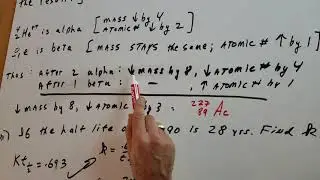 the resulting
4 2 He++ is alpha [ MASS ↓ by 4 ATOMIC # ↓ by 2 ]
0 -1 e is beta [ MASS STAYS THE SAME; ATOMIC # ↑ by 1 ]
Thus: AFTER 2 alpha: ↓ MASS by 8, ↓ ATOMIC # by 4
AFTER 1 beta: — , ↑ ATOMIC # by 1
↓ MASS by 8, ↓ ATOMIC # by 3 = 227 89 Ac
If the half l 90 is 28 yrs. Find k
K t 1/2 = .693